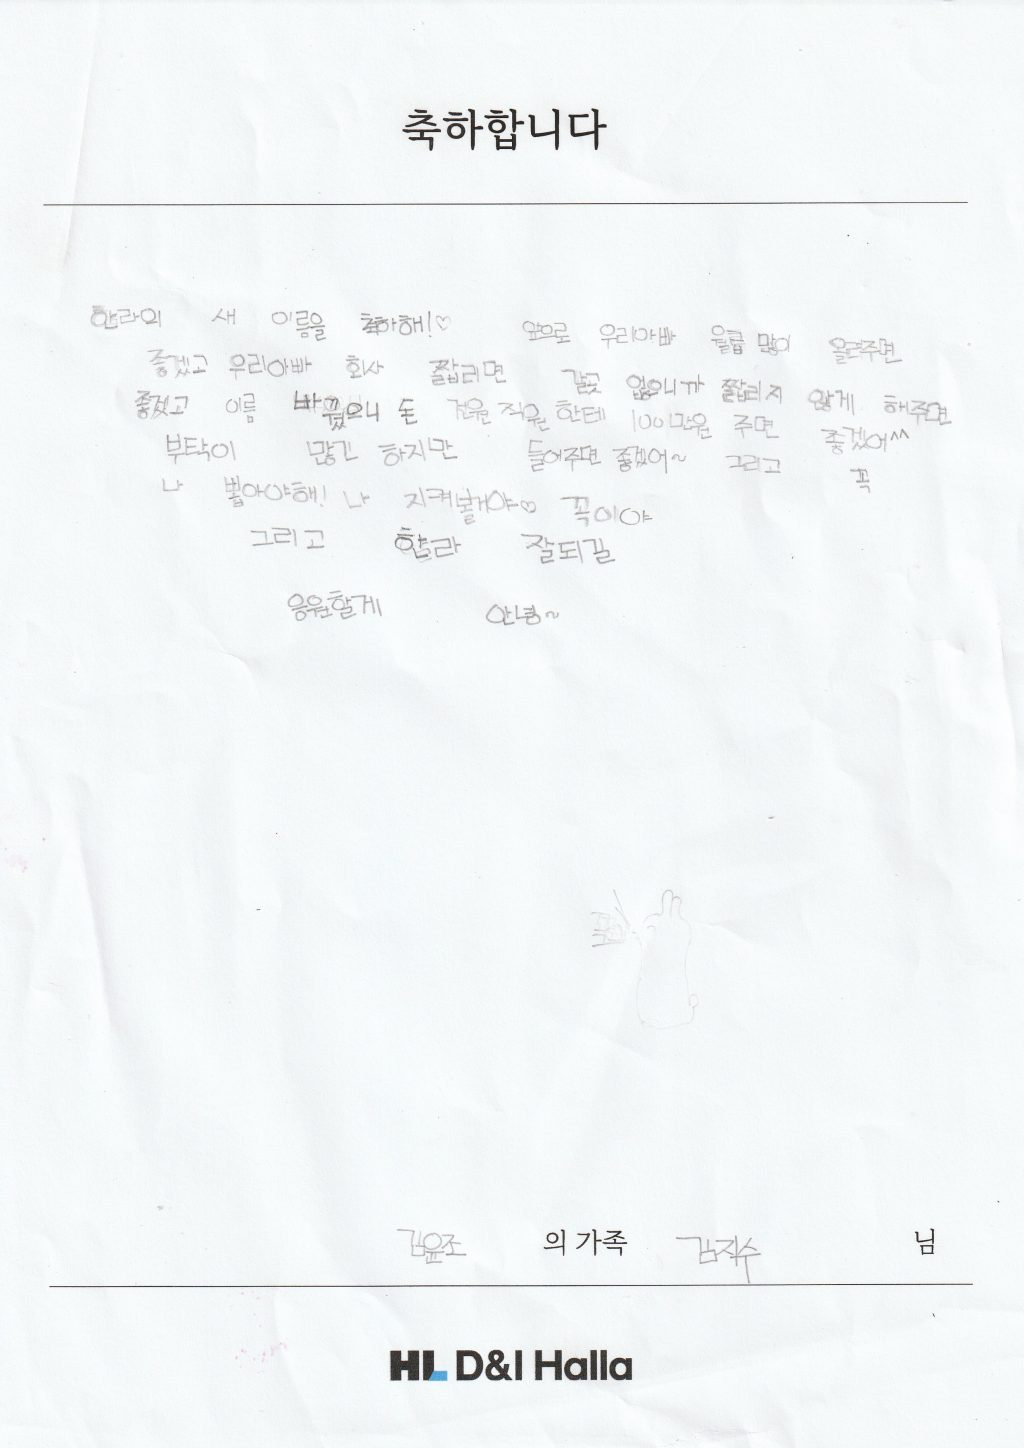 축하합니다
한라의 새 이름을 축하해!♡ 앞으로 우리아빠 월급 많이 올려주면
좋겠고 우리아빠 회사 짤립리면 갈곳 없으니까 짤립리지 않게 해주면
좋겠고 이름 바꿨으니 돈 직원한테 100만원 주면 좋겠어^^
부탁이 많긴 하지만 들어주면 좋겠어~ 그리고 꼭
나 뽑아야해! 나 지켜볼거야♡ 꼭이야
그리고 한라 잘되길
응원할게 안녕~
김윤조 의 가족 김지수 님
HL D&I Halla